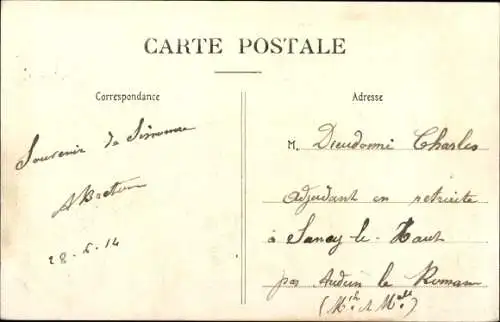 CARTE POSTALE
Correspondance
Adresse
Souvenir de Simonne
28-6-14
M. Dieudonné Charles
adjudant en retraite
à Sancy-le-Haut
par Audun le Roman
(Mthe & Mlle)